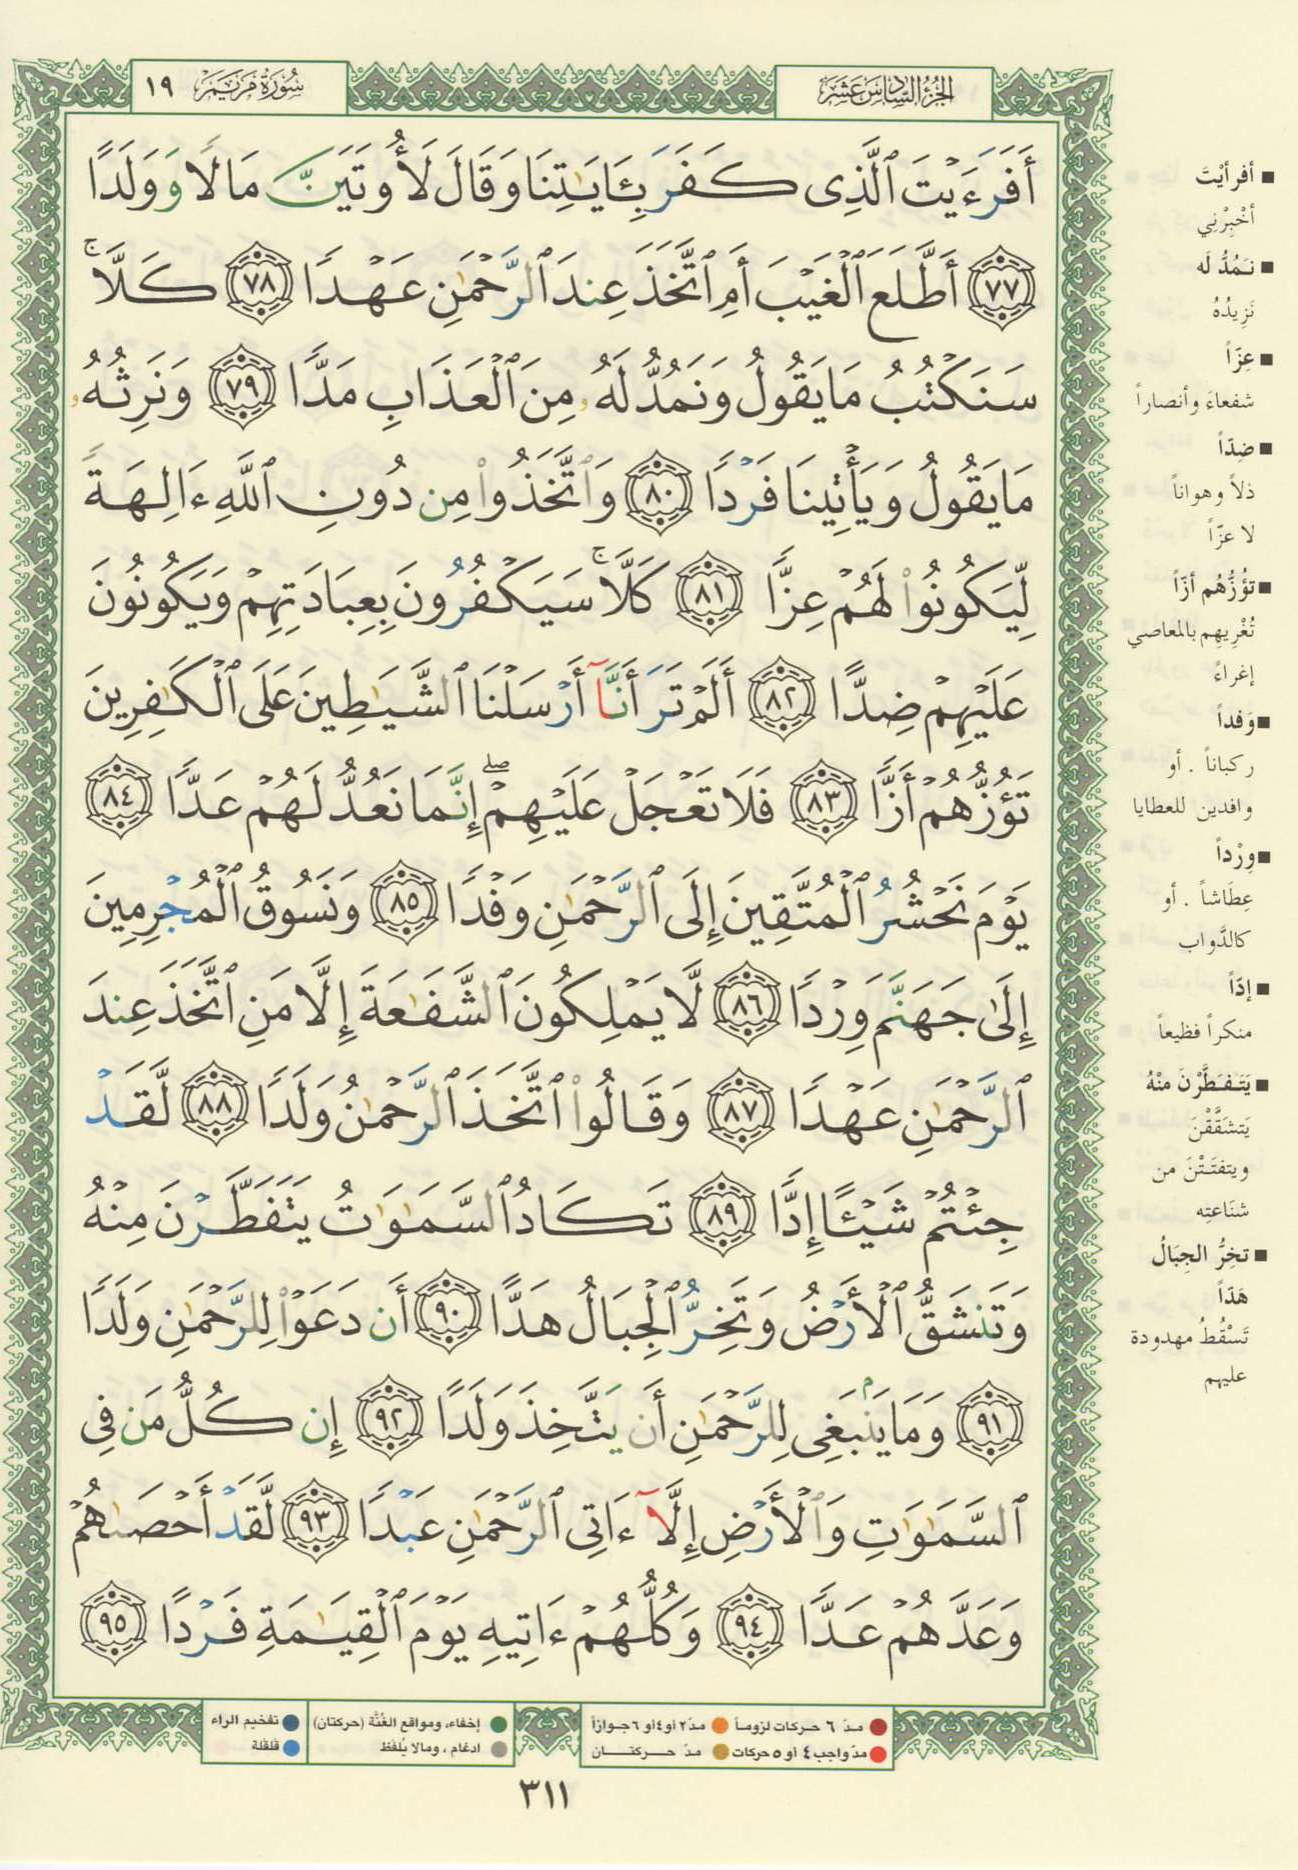 الجزء السادس عشر
سورة مريم ١٩
أَفَرَءَيْتَ ٱلَّذِى كَفَرَ بِـَٔايَٰتِنَا وَقَالَ لَأُوتَيَنَّ مَالًا وَوَلَدًا
﴿٧٧﴾ أَطَّلَعَ ٱلْغَيْبَ أَمِ ٱتَّخَذَ عِندَ ٱلرَّحْمَٰنِ عَهْدًا ﴿٧٨﴾ كَلَّاۚ
سَنَكْتُبُ مَا يَقُولُ وَنَمُدُّ لَهُۥ مِنَ ٱلْعَذَابِ مَدًّا ﴿٧٩﴾ وَنَرِثُهُۥ
مَا يَقُولُ وَيَأْتِينَا فَرْدًا ﴿٨٠﴾ وَٱتَّخَذُوا۟ مِن دُونِ ٱللَّهِ ءَالِهَةً
لِّيَكُونُوا۟ لَهُمْ عِزًّا ﴿٨١﴾ كَلَّاۚ سَيَكْفُرُونَ بِعِبَادَتِهِمْ وَيَكُونُونَ
عَلَيْهِمْ ضِدًّا ﴿٨٢﴾ أَلَمْ تَرَ أَنَّآ أَرْسَلْنَا ٱلشَّيَٰطِينَ عَلَى ٱلْكَٰفِرِينَ
تَؤُزُّهُمْ أَزًّا ﴿٨٣﴾ فَلَا تَعْجَلْ عَلَيْهِمْۖ إِنَّمَا نَعُدُّ لَهُمْ عَدًّا ﴿٨٤﴾
يَوْمَ نَحْشُرُ ٱلْمُتَّقِينَ إِلَى ٱلرَّحْمَٰنِ وَفْدًا ﴿٨٥﴾ وَنَسُوقُ ٱلْمُجْرِمِينَ
إِلَىٰ جَهَنَّمَ وِرْدًا ﴿٨٦﴾ لَّا يَمْلِكُونَ ٱلشَّفَٰعَةَ إِلَّا مَنِ ٱتَّخَذَ عِندَ
ٱلرَّحْمَٰنِ عَهْدًا ﴿٨٧﴾ وَقَالُوا۟ ٱتَّخَذَ ٱلرَّحْمَٰنُ وَلَدًا ﴿٨٨﴾ لَّقَدْ
جِئْتُمْ شَيْـًٔا إِدًّا ﴿٨٩﴾ تَكَادُ ٱلسَّمَٰوَٰتُ يَتَفَطَّرْنَ مِنْهُ
وَتَنشَقُّ ٱلْأَرْضُ وَتَخِرُّ ٱلْجِبَالُ هَدًّا ﴿٩٠﴾ أَن دَعَوْا۟ لِلرَّحْمَٰنِ وَلَدًا
﴿٩١﴾ وَمَا يَنۢبَغِى لِلرَّحْمَٰنِ أَن يَتَّخِذَ وَلَدًا ﴿٩٢﴾ إِن كُلُّ مَن فِى
ٱلسَّمَٰوَٰتِ وَٱلْأَرْضِ إِلَّآ ءَاتِى ٱلرَّحْمَٰنِ عَبْدًا ﴿٩٣﴾ لَّقَدْ أَحْصَىٰهُمْ
وَعَدَّهُمْ عَدًّا ﴿٩٤﴾ وَكُلُّهُمْ ءَاتِيهِ يَوْمَ ٱلْقِيَٰمَةِ فَرْدًا ﴿٩٥﴾
■ أفرأيْتَ
أخْبِرْنِي
■ نَمُدُّ لَه
نَزِيدُهُ
■ عِزّاً
شفعاءَ وأنصاراً
■ ضِدّاً
ذلاً وهواناً
لا عزّاً
■ تؤُزُّهُم أزّاً
تُغْرِيهِم بالمعاصي
إغراءً
■ وَفداً
ركباناً . أو
وافدين للعطايا
■ وِرْداً
عِطَاشاً . أو
كالدَّواب
■ إدّاً
منكراً فظيعاً
■ يَتَفَطَّرْنَ منْهُ
يَتشَقَّقْنَ
ويتفتَّتْنَ من
شنَاعتِه
■ تخِرُّ الجِبَالُ
هَدّاً
تَسْقُطُ مهدودة
عليهم
مدّ ٦ حركات لزوماً
مدّ٢ أو٤أو ٦جوازاً
مدّ واجب ٤ أو ٥ حركات
مدّ حركتان
إخفاء، ومواقع الغُنَّة (حركتان)
ادغام ، ومالا يُلفَظ
تفخيم الراء
قلقلة
٣١١